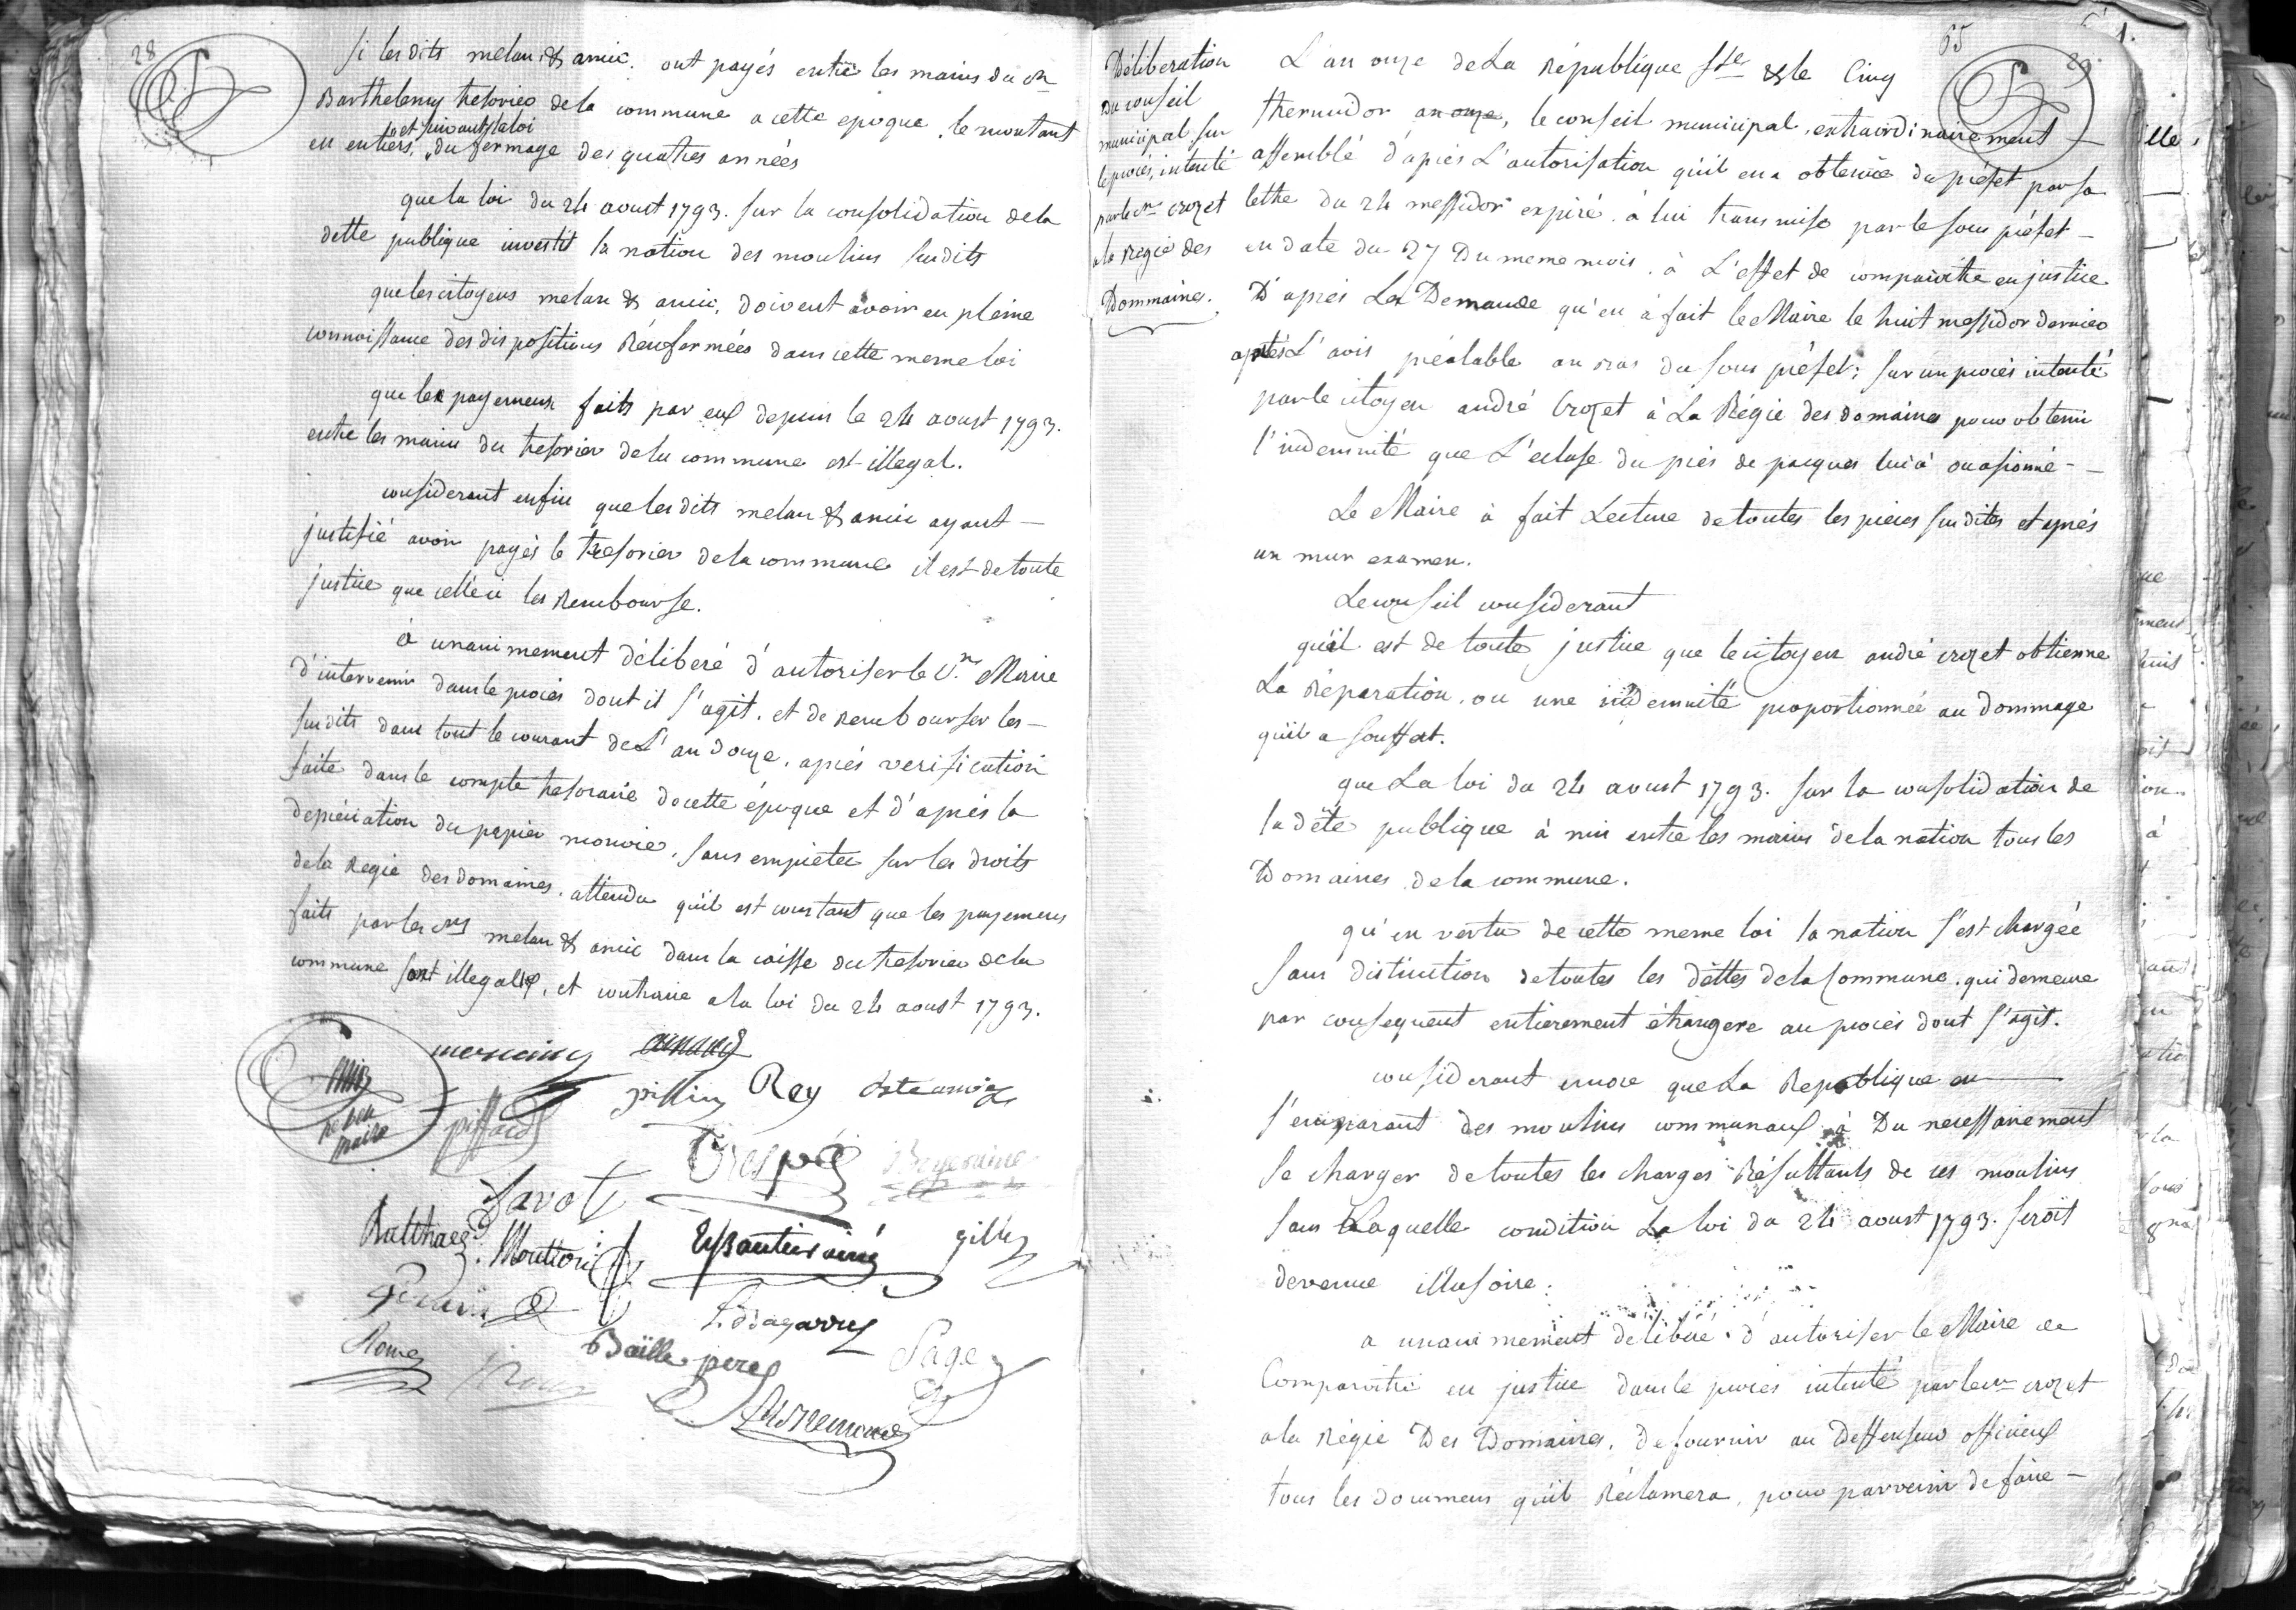 28
si les dits melan & amic. ont payés entre les mains du cn
Barthelemy tresorier de la commune a cette epoque, le montant
et suivant la loi
en entiers, du fermage des quatres années
que la loi du 24 aoust 1793. sur la consolidation de la
dette publique investit la nation des moulins susdits
que les citoyens melan & amic, doivent avoir eu pleine
connoissance des dispositions Rénfermées dans cette meme loi
que les payemens faits par eux depuis le 24 aoust 1793.
entre les mains du tresorier de la commune est illegal.
considerant enfin que les dits melan & amic ayant
justifié avoir payés le tresorier de la commune il est de toute
justice que celle ci les Rembourse.
à unanimement délibéré d'autoriser le Cn Maire
d'intervenir dans le procés dont il s'agit. et de rembourser les
susdits dans tout le courant de L'an douze, aprés verification
faite dans le compte tresoraire de cette époque et d'aprés la
depréciation du papier monoie, sans empieter sur les droits
de la Regie des domaines. attendu qu'il est constant que les payemens
faits par les cns melan & amic dans la caisse du tresorier de la
commune sont illegales, et contraire a la loi du 24 aoust 1793.
maire
piffard
pissin Rey
Crespin
Savot
Balthaz Moutton
gilly
Baille pere
Page
Rome
Roux
65
Déliberation
du conseil
municipal sur
le procés, intenté
par le cn crozet
a la Regie des
Dommaines.
L'an onze de La République fse & le Cinq
thermidor an onze, le conseil municipal, extraordinairement
assemblé d'aprés L'autorisation qu'il en a obtenüe du préfet par sa
lettre du 24 messidor expiré. à lui transmise par le sous préfet
en date du 27 Du meme mois. à L'effet de comparoitre en justice
D'aprés La Demande qu'en à fait le Maire le huit messidor dernier
aprés L'avis préalable au bas du sous préfet; sur un procés intenté
par le citoyen andré Crozet à La Régie des domaines pour obtenir
l'indemnité que L'ecluse du prés de paques lui à ocasionné
Le Maire à fait Lecture de toutes les pieces susdites et aprés
un mur examen.
Le conseil considerant
qu'il est de toute justice que le citoyen andré crozet obtienne
La Réparation, ou une indemnité proportionnée au dommage
qu'il a souffert.
que La loi du 24 aoust 1793. sur la consolidation de
la dête publique à mis entre les mains de la nation tous les
Domaines de la commune.
qu'en vertu de cette meme loi la nation s'est chargée
sans distinction de toutes les dêttes de la Commune. qui demeure
par consequent entierement étrangere au procés dont s'agit.
considerant encore que La Republique en
s'emparant des moulins communaux à Du necessairement
se charger de toutes les charges Résultants de ces moulins
sans Laquelle condition La loi du 24 aoust 1793. seroit
devenue illusoire:
a unanimement délibéré d'autoriser le Maire de
Comparoitre en justice dans le procés intenté par le cn crozet
a la Régie Des Domaines. de fournir au Deffenseur officieux
tous les documens qu'il Réclamera, pour parvenir de faire